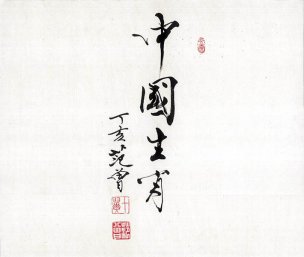 中國生肖
丁亥范曾